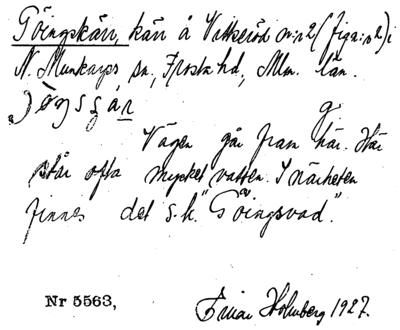 Göingskärr, kärr å Vitseröd m:n 2 (fig a:n 2) i
N. Munkarps sn, Frosta hd, Mlm. län.
g
Vägen går fram här. Här
står ofta mycket vatten. I närheten
finnes det s.k. "Göingsvad".
Nr 5563,
Einar Holmberg 1927.